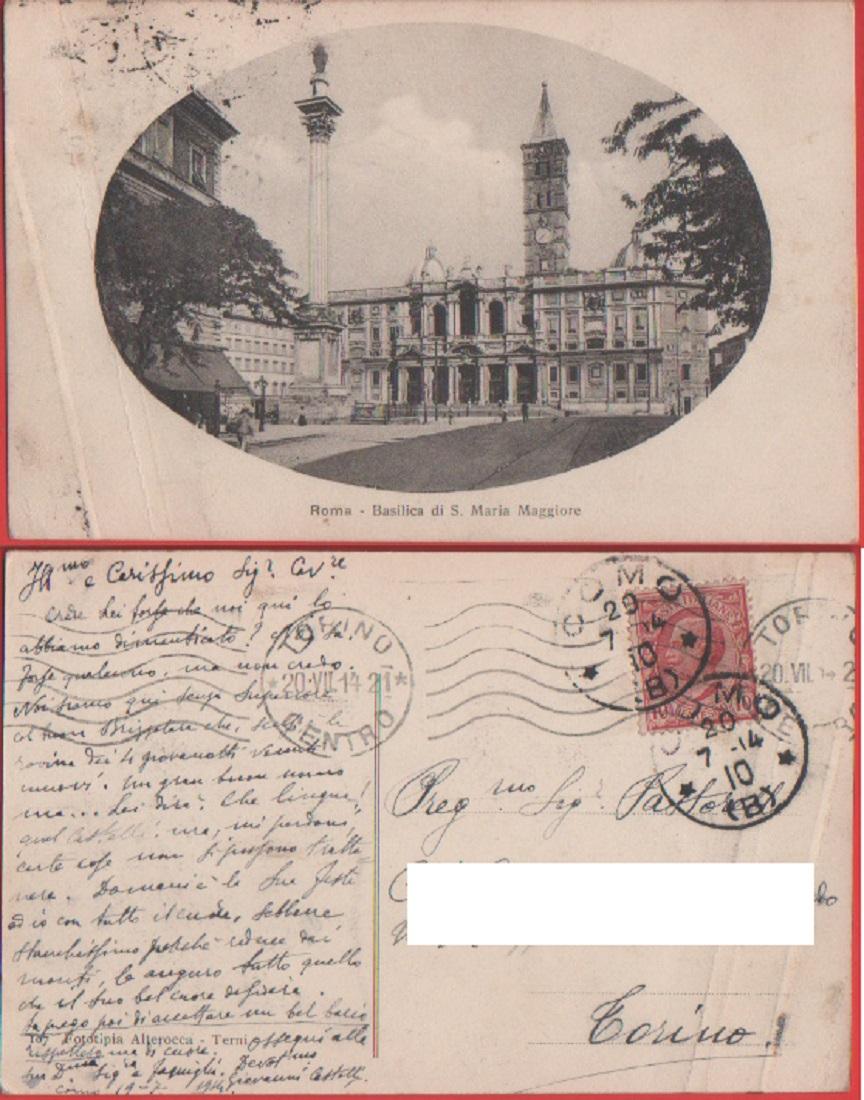 Roma - Basilica di S. Maria Maggiore
Ill.mo e Carissimo Sig.r Cav.re
Crede Lei forse che noi qui lo
abbiamo dimenticato?
forse qualcuno, ma non credo.
Noi siamo qui senza Superiore
col buon
rovina dei giovanotti venuti
nuovi. Un gran buon uomo
ma... Lei dirà: Che lingua!
quel Castelli. ma, mi perdoni,
certe cose non si possono tratte
nere. Domani è la Sua festa
ed io con tutto il cuore, sebbene
stanchissimo perchè reduce dai
monti, le auguro tutto quello
che il Suo bel cuore desidera.
La prego poi di accettare un bel bacio
107 Fototipia Alterocca - Terni
ossequi alla
rispettoso ma di cuore.
Sig.ra e famiglia. Devotissimo
Como 19-7-1914 Giovanni Castelli.
TORINO
*20.VII.14 21*
CENTRO
COMO
20
7 -14
10
(B)
COMO
20
7 -14
10
(B)
TOR
20.VII.
Preg.mo Sig.r Pastore
Torino